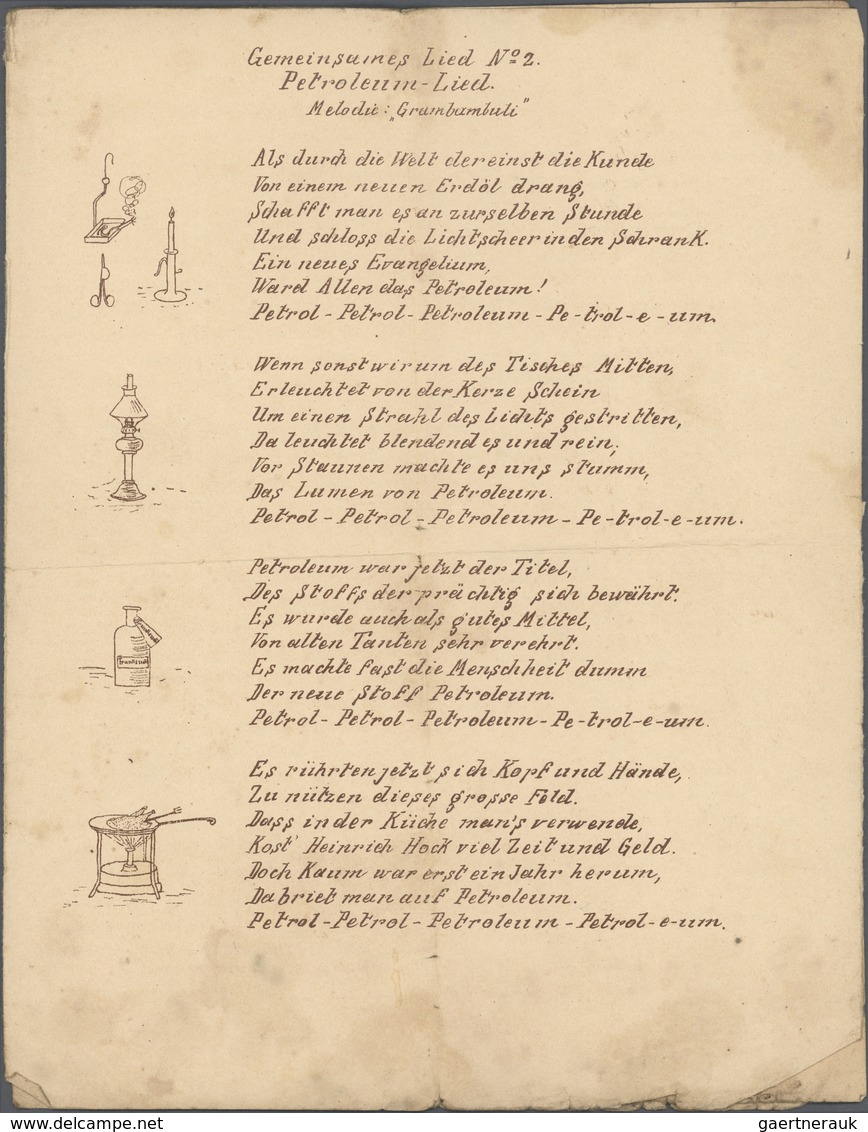 Gemeinsames Lied Nº 2.
Petroleum-Lied.
Melodie: „Grambambuli"
Als durch die Welt dereinst die Kunde
Von einem neuen Erdöl drang,
Schafft man es an zurselben Stunde
Und schloss die Lichtscheer in den Schrank.
Ein neues Evangelium,
Ward Allen das Petroleum!
Petrol - Petrol - Petroleum - Pe - trol - e - um.
Wenn sonst wir um des Tisches Mitten,
Erleuchtet von der Kerze Schein
Um einen Strahl des Lichts gestritten,
Da leuchtet blendend es und rein,
Vor Staunen machte es uns stumm,
Das Lumen von Petroleum.
Petrol - Petrol - Petroleum - Pe - trol - e - um.
Petroleum war jetzt der Titel,
Des Stoffs der prächtig sich bewährt.
Es wurde auch als gutes Mittel,
Von alten Tanten sehr verehrt.
Es machte fast die Menschheit dumm
Der neue Stoff Petroleum.
Petrol - Petrol - Petroleum - Pe - trol - e - um.
Es rührten jetzt sich Kopf und Hände,
Zu nützen dieses grosse Feld.
Dass in der Küche man's verwende,
Kost' Heinrich Hock viel Zeit und Geld.
Doch Kaum war erst ein Jahr herum,
Da briet man auf Petroleum.
Petrol - Petrol - Petroleum - Petrol - e - um.
delcampe.net
gaertnerauk